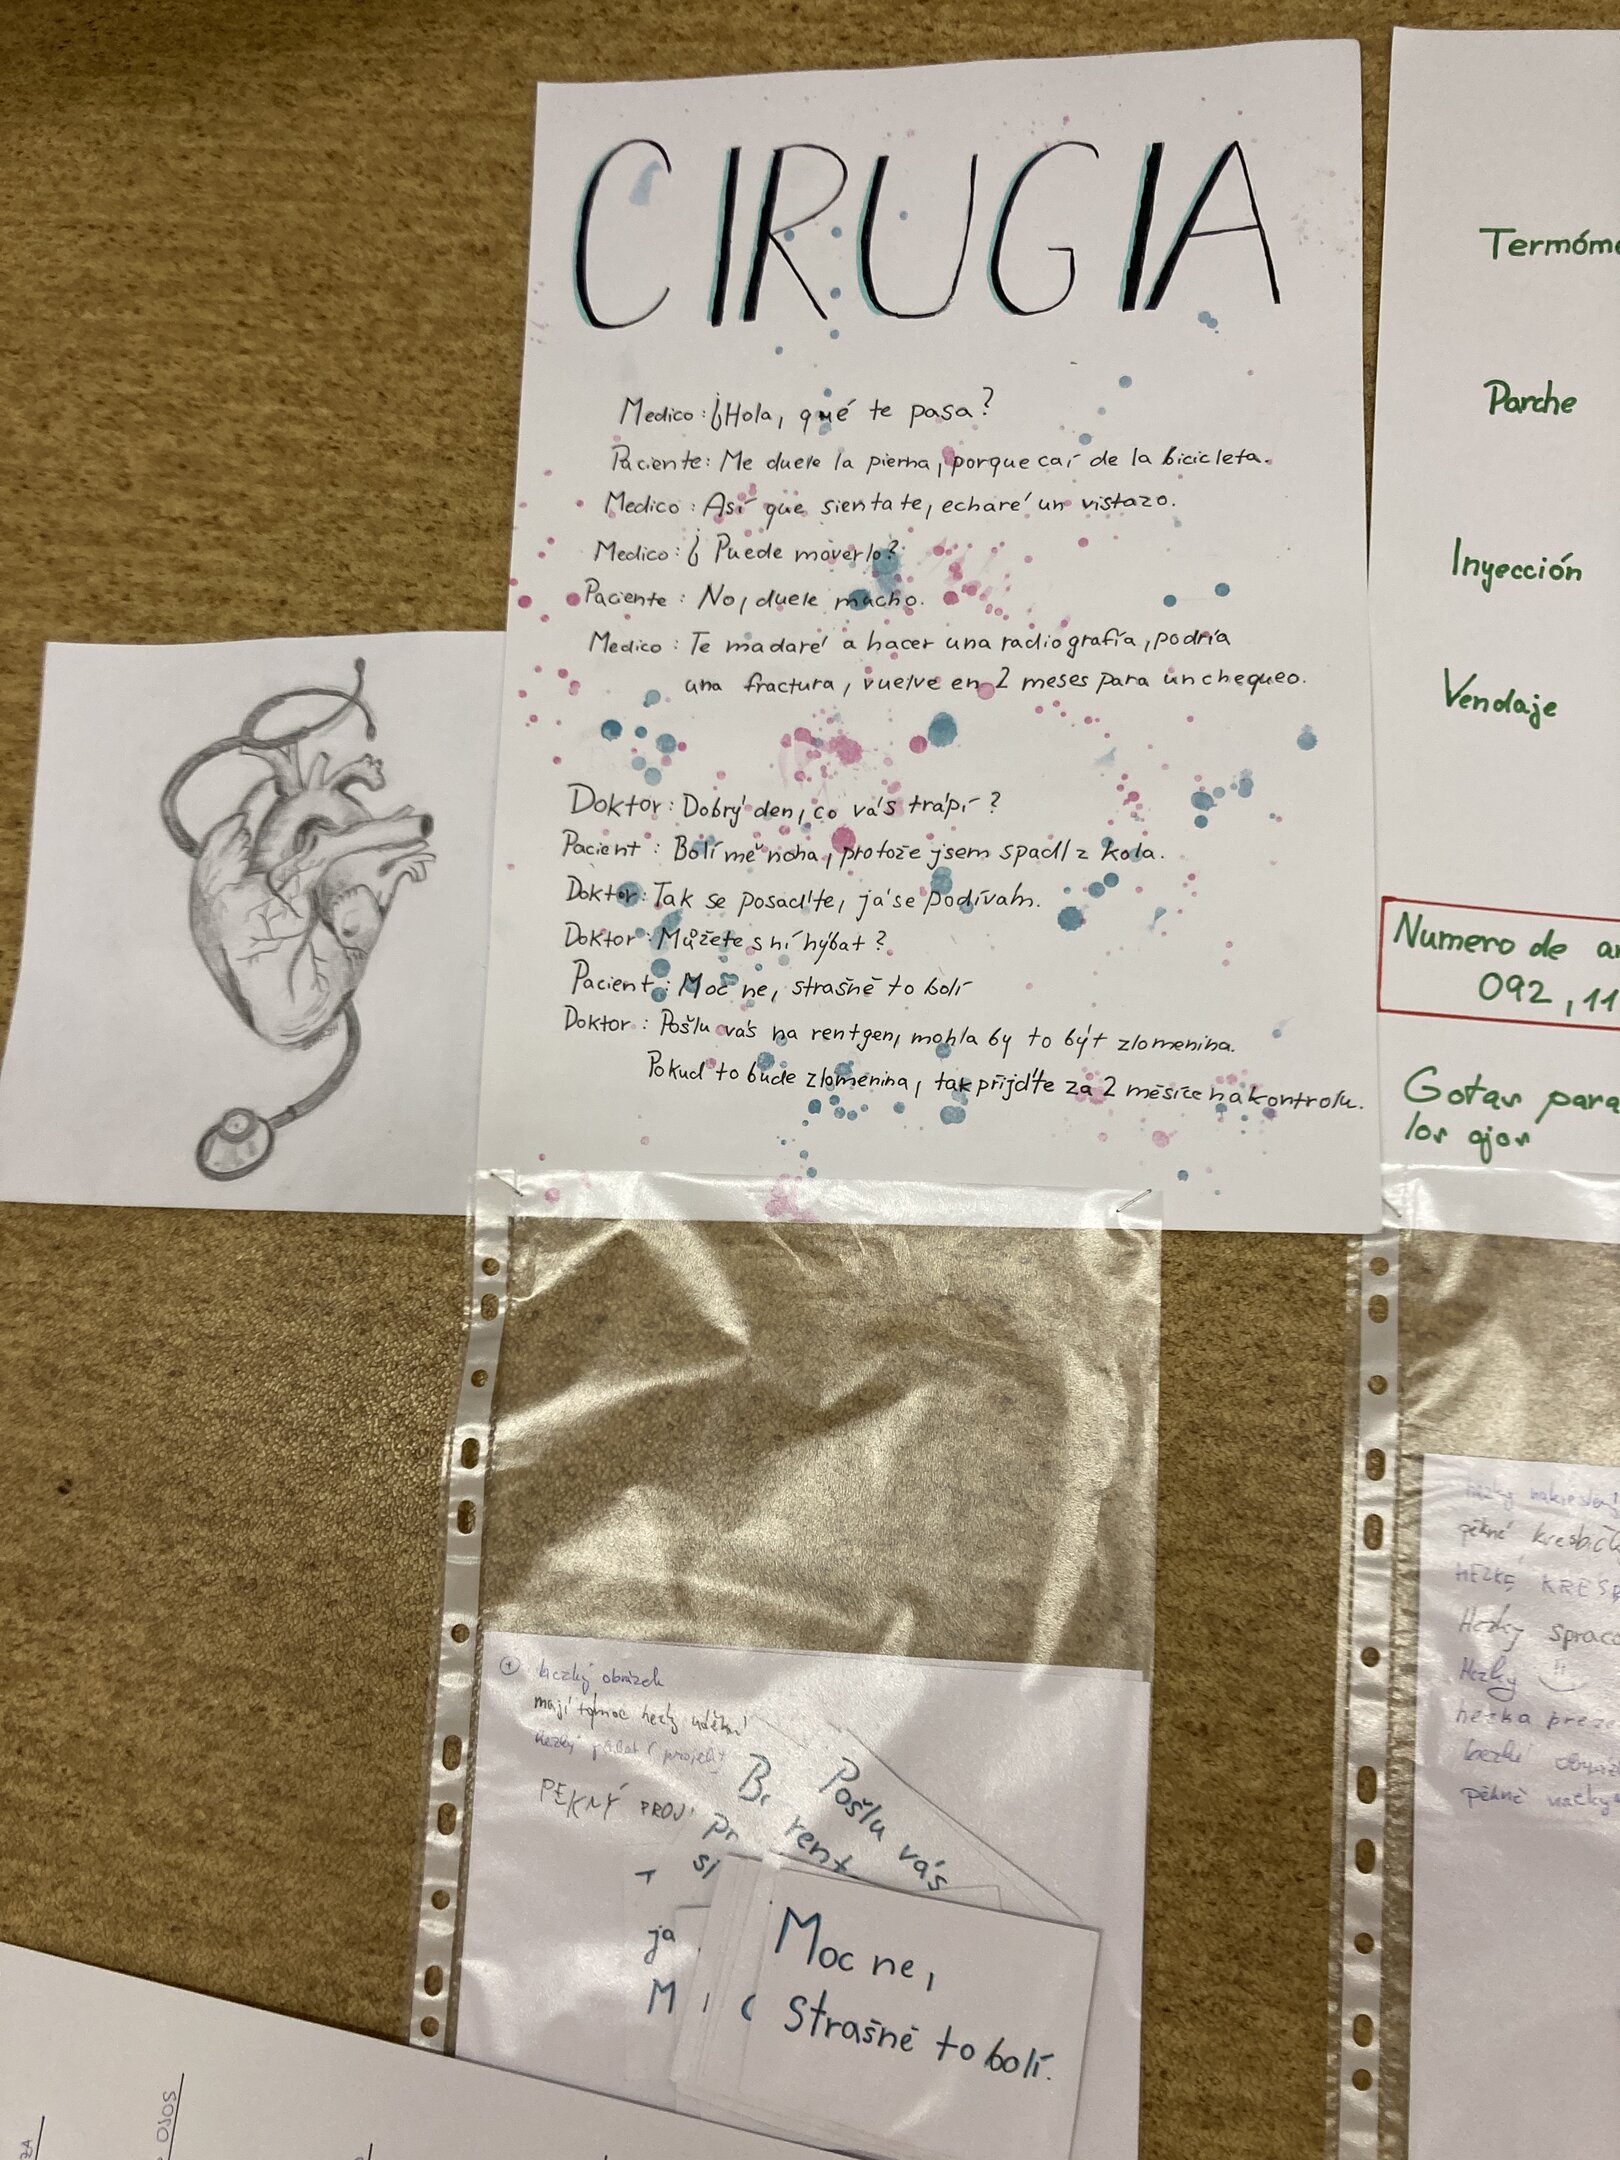 CIRUGIA
Medico: ¡¿Hola, qué te pasa?
Paciente: Me duele la pierna, porque caí de la bicicleta.
Medico: Así que sientate, echaré un vistazo.
Medico: ¿Puede moverlo?
Paciente: No, duele mucho.
Medico: Te madaré a hacer una radiografía, podría
una fractura, vuelve en 2 meses para un chequeo.
Doktor: Dobrý den, co vás trápí?
Pacient: Bolí mě noha, protože jsem spadl z kola.
Doktor: Tak se posaďte, já se podívám.
Doktor: Můžete s ní hýbat?
Pacient: Moc ne, strašně to bolí
Doktor: Pošlu vás na rentgen, mohla by to být zlomenina.
Pokud to bude zlomenina, tak přijďte za 2 měsíce na kontrolu.
Termóme
Parche
Inyección
Vendaje
Numero de
092, 11
Gotas para
los ojos
hezký obrázek
mají
hezký projekt
PĚKNÝ PROJ
Pošlu vás
rent
ja
M
Moc ne,
Strašně to bolí.
pěkné
HEZKÁ KRESB
Hezky
Hezky
hezká
hezké
pěkné
OJOS
ZA